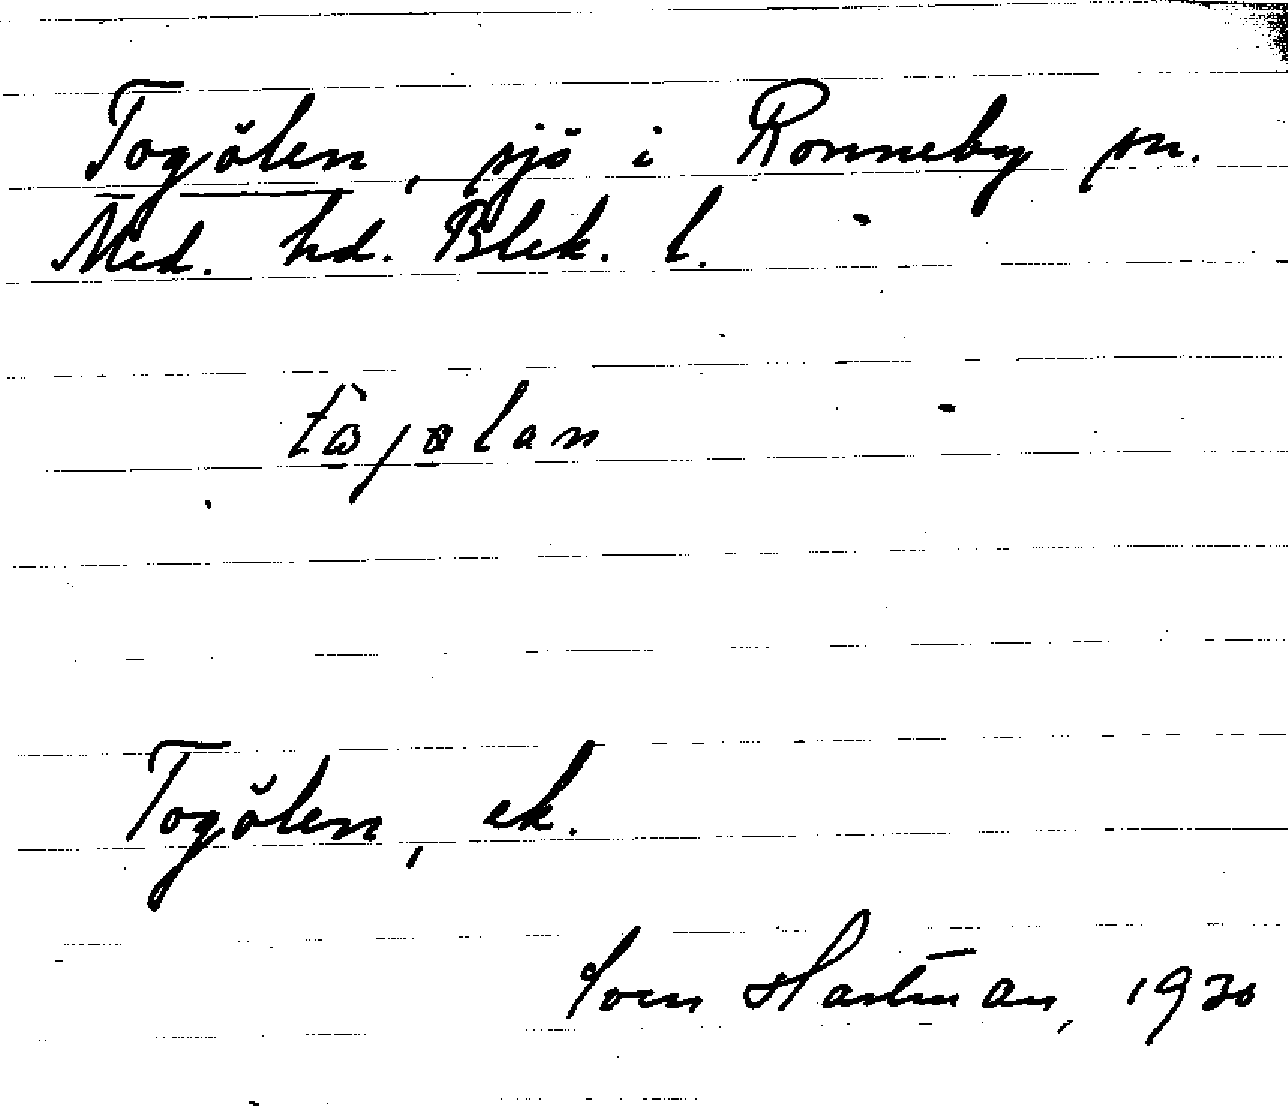 Togölen, sjö i Ronneby sn.
Med. hd. Blek. l.
Togölen, ek.
Sven Hartman, 1930